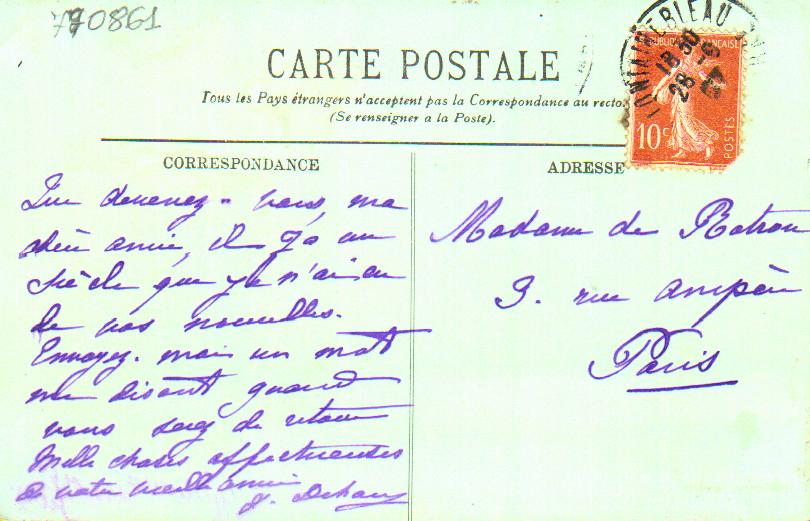 770861
CARTE POSTALE
Tous les Pays étrangers n'acceptent pas la Correspondance au recto.
(Se renseigner a la Poste).
FONTAINEBLEAU
18 30
28 -5
REPUBLIQUE FRANÇAISE
10 c
POSTES
CORRESPONDANCE
Que devenez-vous, ma
chère amie, il y a un
siècle que je n'ai eu
de vos nouvelles.
Envoyez-moi un mot
me disant quand
vous serez de retour
Mille choses affectueuses
de votre vieille amie
ADRESSE
Madame de Rotrou
3. rue Ampère
Paris